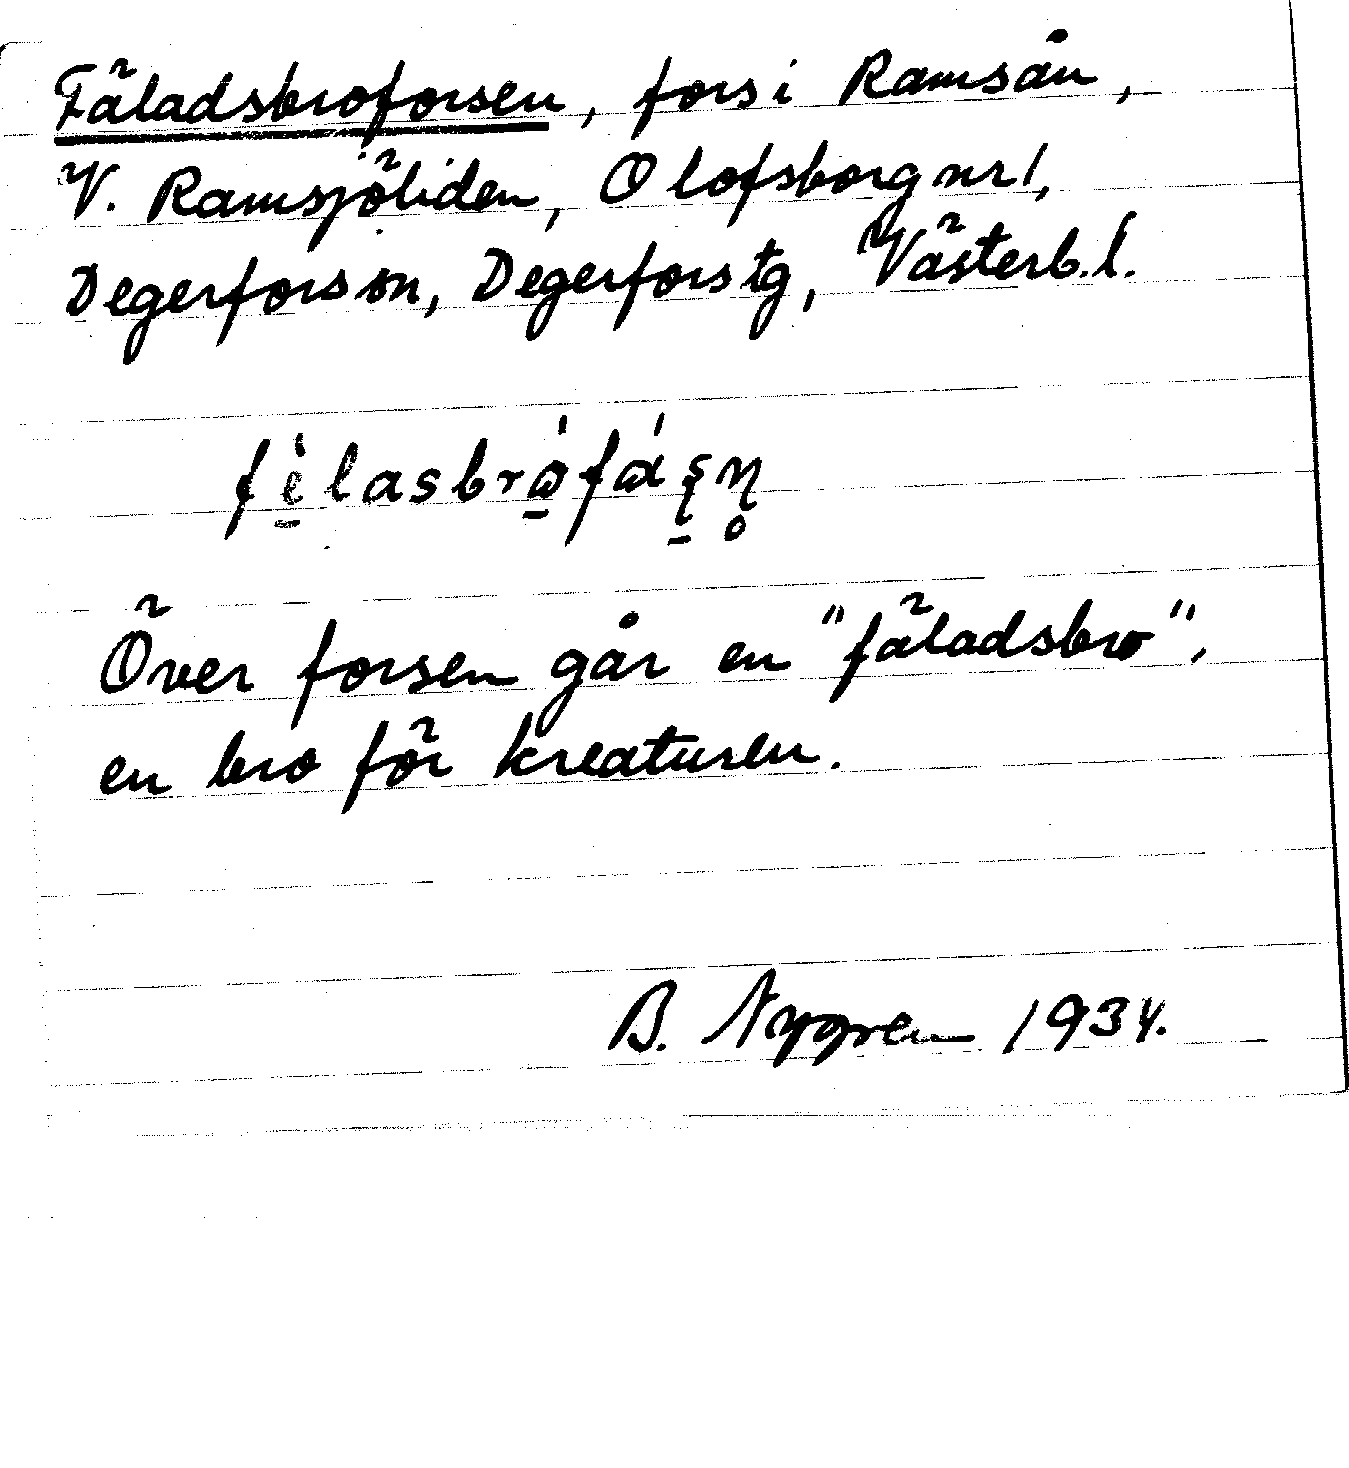 Fäladsbroforsen, fors i Ramsån,
V. Ramsjöliden, Olofsborg nr 1,
Degerfors sn, Degerfors tg, Västerb. l.
Över forsen går en "fäladsbro",
en bro för kreaturen.
B. Nygren 1934.